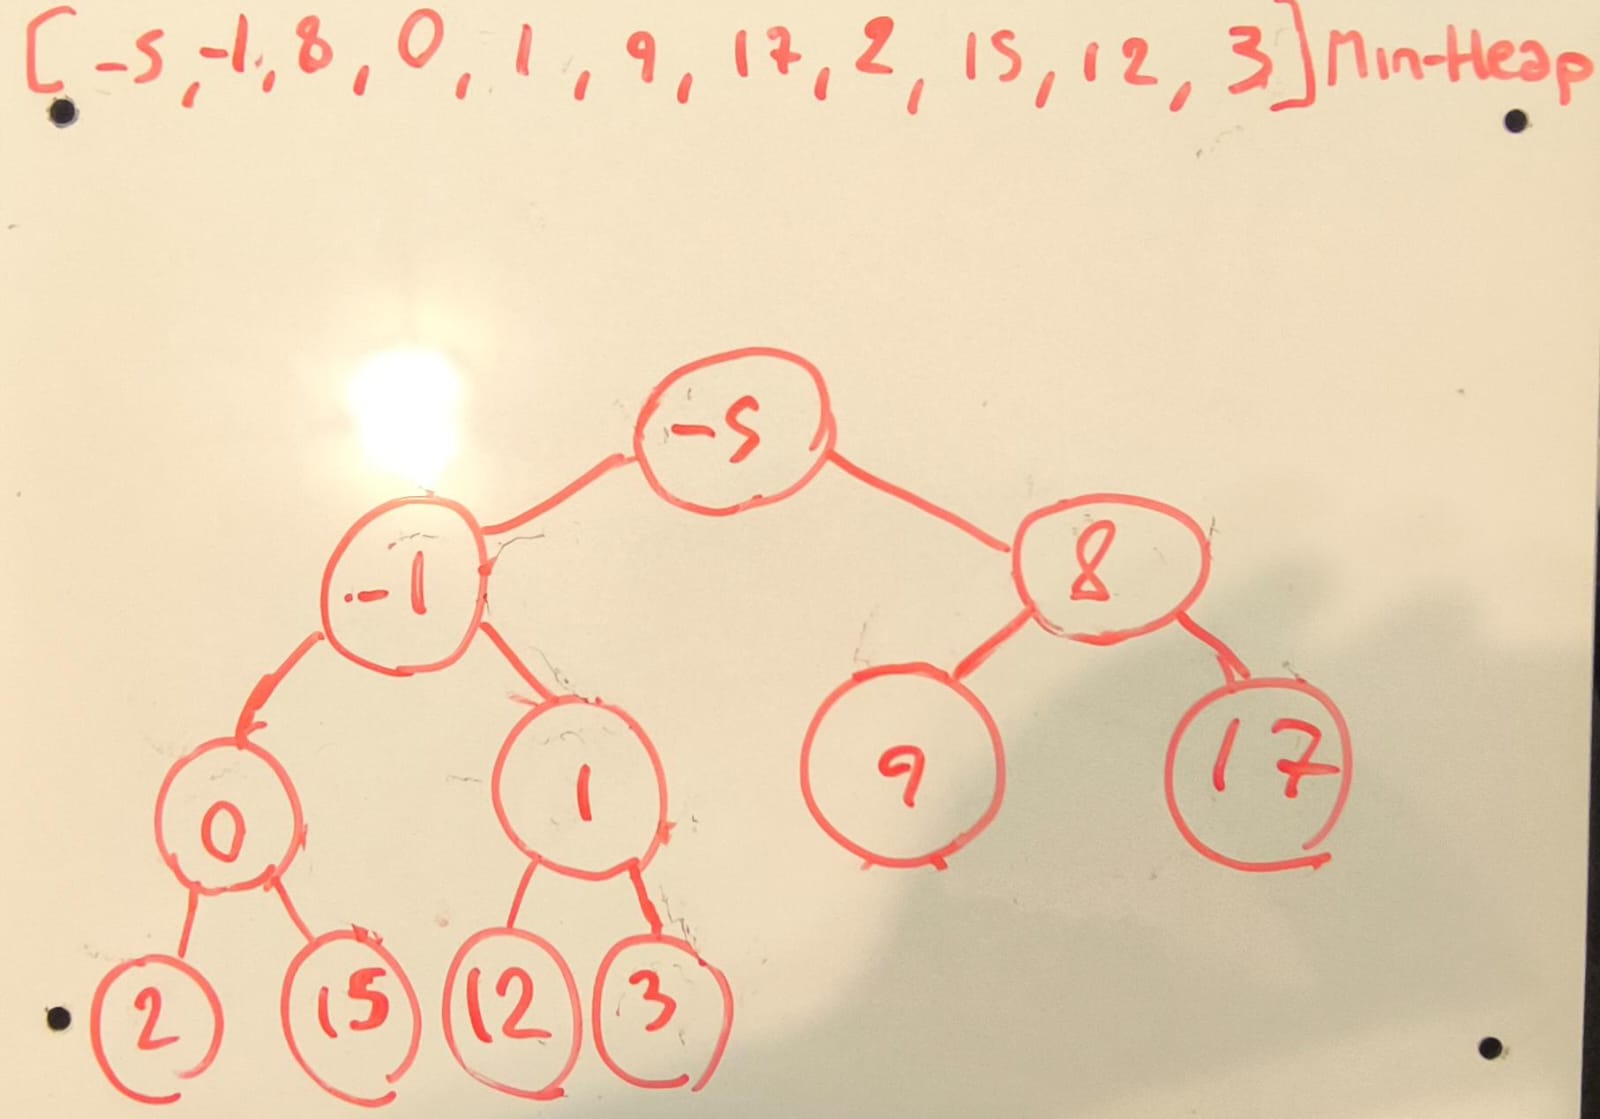 [-5, -1, 8, 0, 1, 9, 17, 2, 15, 12, 3] Min-Heap
-5
-1 8
0 1 9 17
2 15 12 3